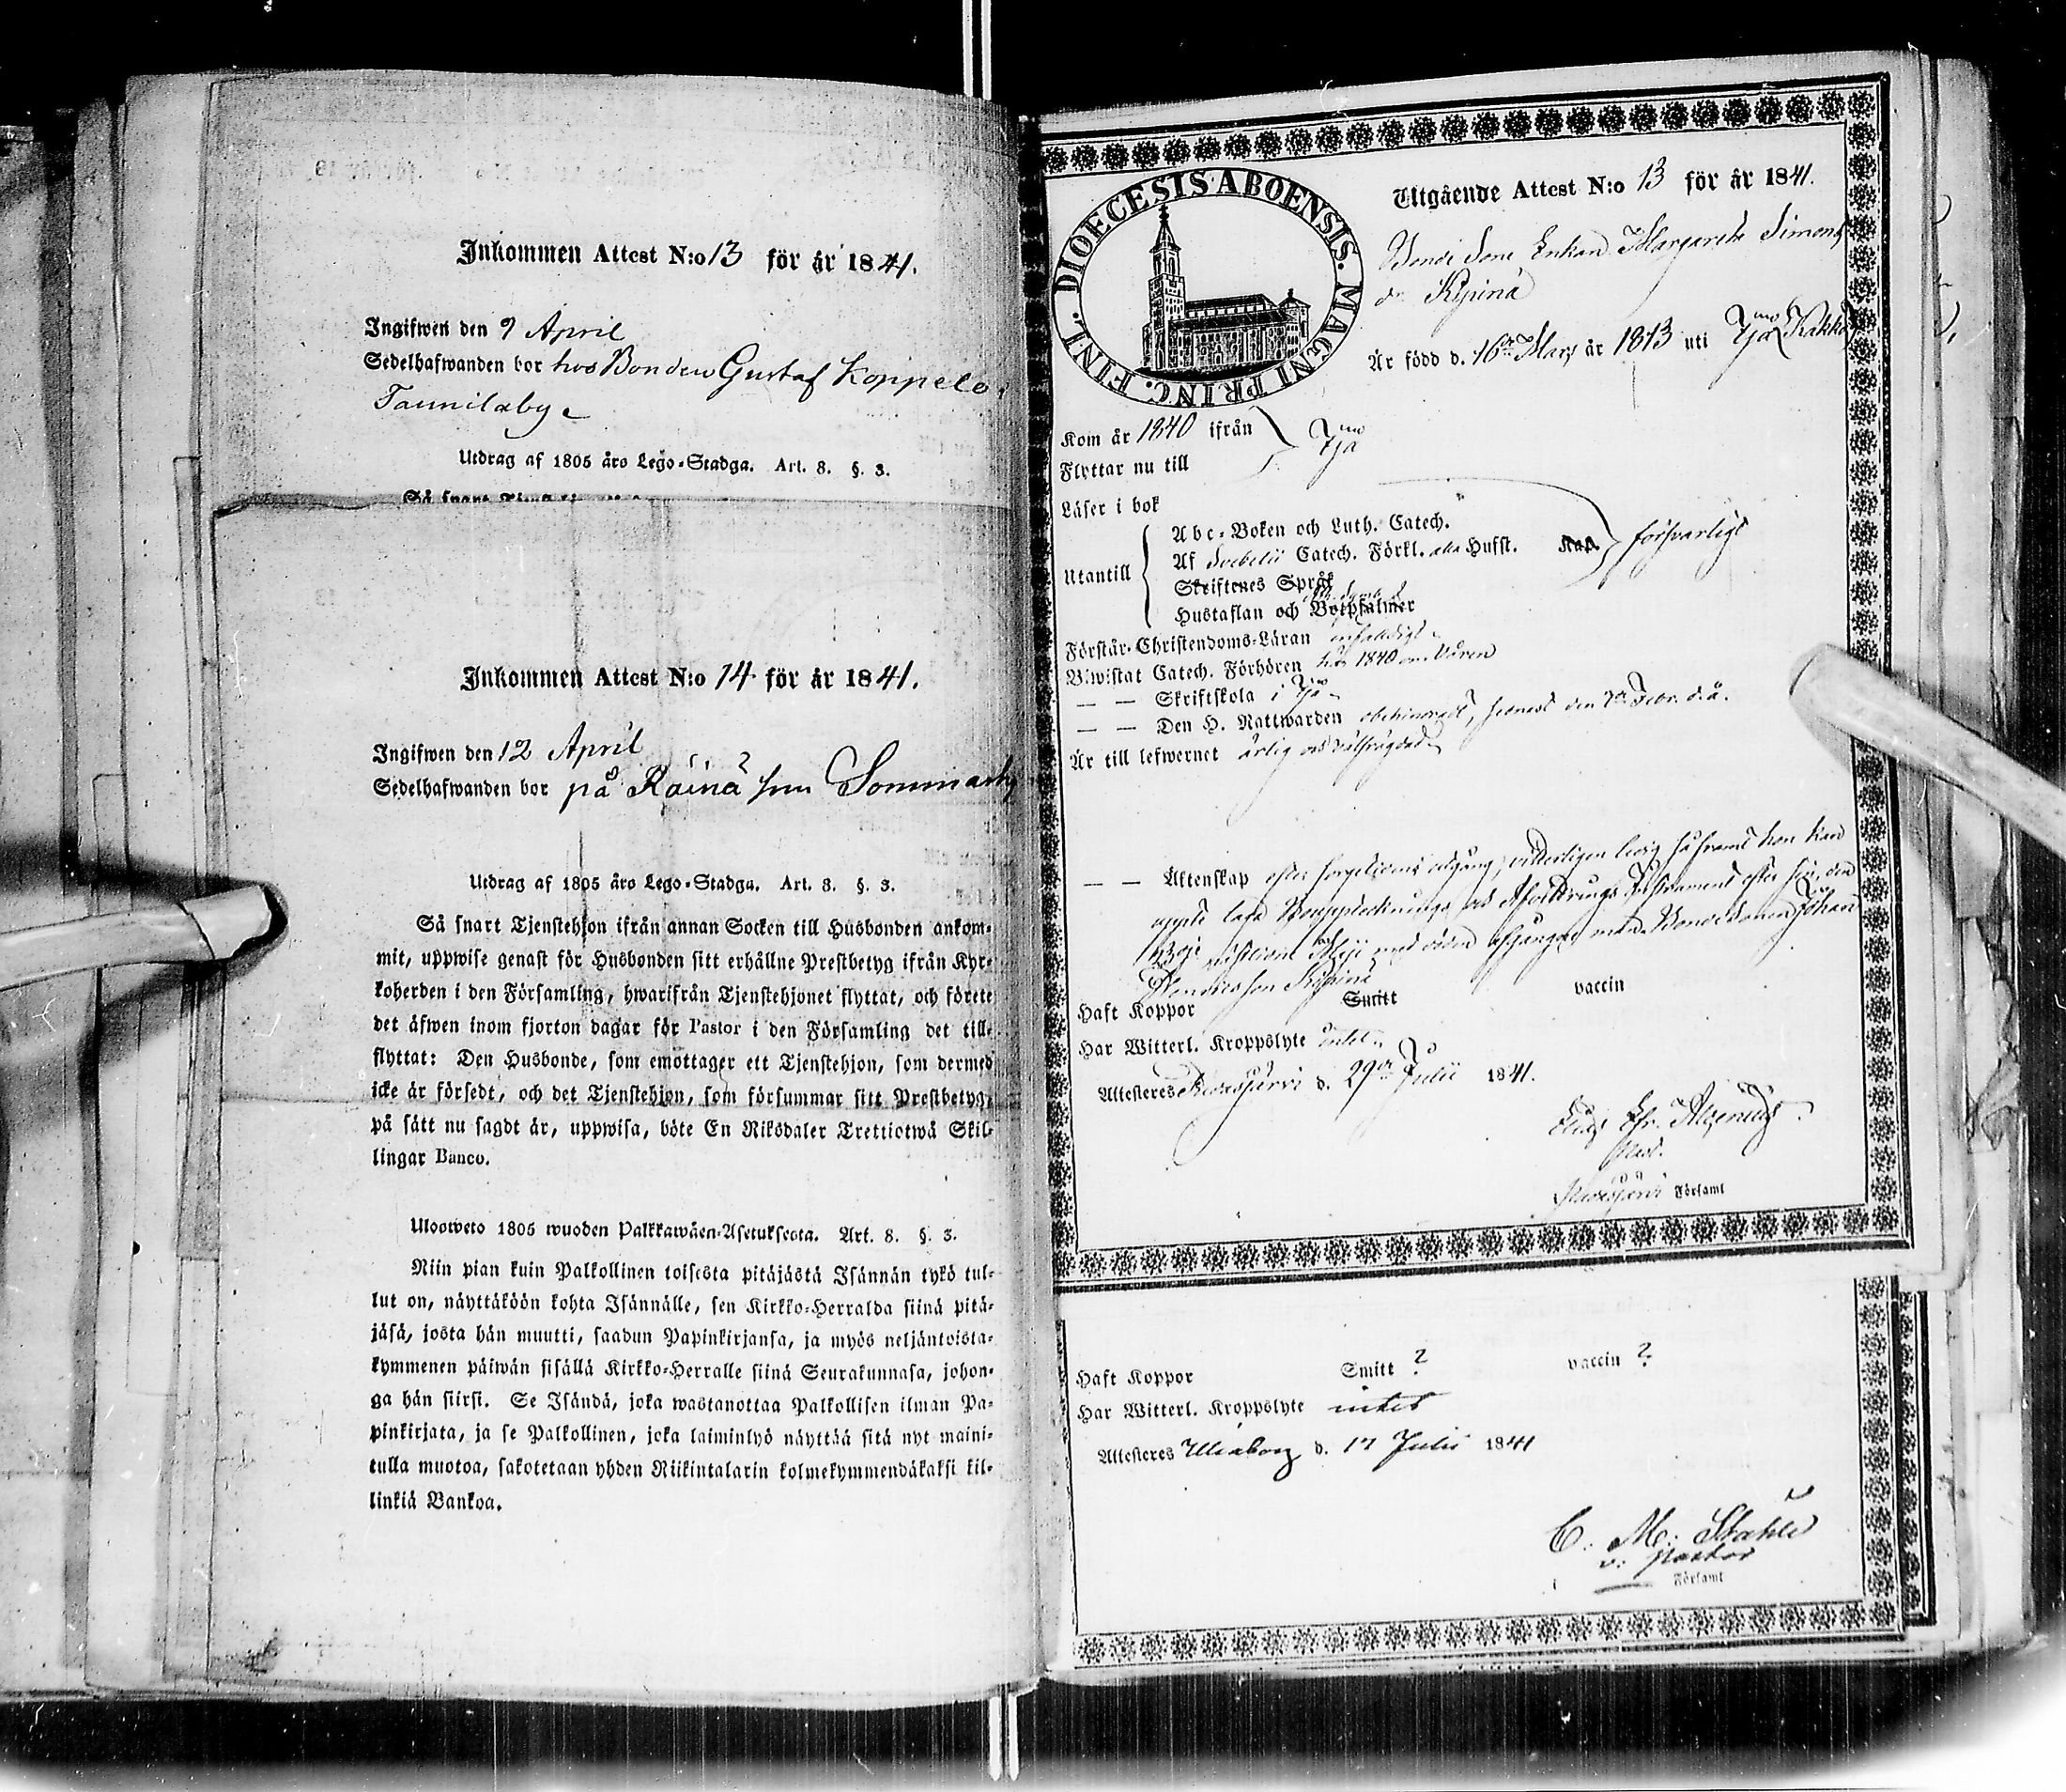 Inkommen Attest N:o 13 för år 1841.
Ingifwen den 9 April
Sedelhafwanden bor hos Bonden Gustaf Koppelo i
Tannilaby
Utdrag af 1805 års Lego-Stadga. Art. 8. §. 3.
Inkommen Attest N:o 14 för år 1841.
Ingifwen den 12 April
Sedelhafwanden bor på Räinä Sommarby
Utdrag af 1805 års Lego-Stadga. Art. 8. §. 3.
Så snart Tjenstehjon ifrån annan Socken till Husbonden ankom-
mit, uppwise genast för Husbonden sitt erhållne Prestbetyg ifrån Kyr-
koherden i den Församling, hwarifrån Tjenstehjonet flyttat, och förete
det äfwen inom fjorton dagar för Pastor i den Församling det till-
flyttat: Den Husbonde, som emottager ett Tjenstehjon, som dermed
icke är försedt, och det Tjenstehjon, som försummar sitt Prestbetyg,
på sätt nu sagdt är, uppwisa, böte En Riksdaler Trettiotwå Skil-
lingar Banco.
Ulosweto 1805 wuoden Palkkawäen-Asetuksesta. Art. 8. §. 3.
Niin pian kuin Palkollinen toisesta pitäjästä Isännän tykö tul-
lut on, näyttäköön kohta Isännälle, sen Kirkko-Herralda siinä pitä-
jäsä, josta hän muutti, saadun Papinkirjansa, ja myös neljäntoista-
kymmenen päiwän sisällä Kirkko-Herralle siinä Seurakunnasa, johon-
ga hän siirsi. Se Isändä, joka wastanottaa Palkollisen ilman Pa-
pinkirjata, ja se Palkollinen, joka laiminlyö näyttää sitä nyt maini-
tulla muotoa, sakotetaan yhden Riikintalarin kolmekymmendäkaksi kil-
linkiä Bankoa.
DIOECESIS ABOENSIS. MAGNI PRINC. FINL.
Utgående Attest N:o 13 för år 1841.
Bonde Sone Enkan Margareta Simons
dr Kipinä
Är född d. 16de Mars år 1813 uti Ijå
Kom år 1840 ifrån
Flyttar nu till
Ijå
Läser i bok
Utantill
Abc-Boken och Luth. Catech.
Af Svebelii Catech. Förkl. alla Hufst. Kap. försvarligt
Skriftenes Språk
Hustaflan och Botpsalmer
Förstår Christendoms-Läran enfaldigt
Biwistat Catech. Förhören här 1840 om Våren
— — Skriftskola i Ijå
— — Den H. Nattwarden obehindradt, senast den 7de Febr. d.å.
Är till lefwernet ärlig och välfrägdad
— — Äktenskap efter sorgetidens utgång, vitterligen ledig så framt hon kan
uppte laga Boupptecknings och Afvittrings Instrument efter sin, den
med döden afgångne man Bondesonen Johan
Henricsson Kipinä
Haft Koppor Smitt vaccin
Har Witterl. Kroppslyte intet
Attesteres d. 29de Julii 1841.
Församl
Haft Koppor Smitt ? vaccin ?
Har Witterl. Kroppslyte intet
Attesteres Uleåborg d. 17 Julii 1841
C. M. Ståhle
v. pastor
Församl